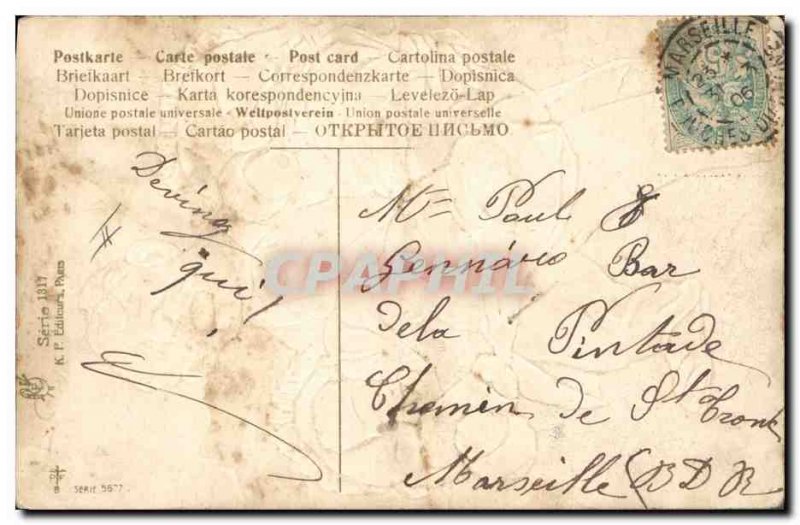 Postkarte – Carte postale – Post card – Cartolina postale
Briefkaart – Brefkort – Correspondenzkarte – Dopisnica
Dopisnice – Karta korespondencyjna – Levelező-Lap
Unione postale universale – Weltpostverein – Union postale universelle
Tarjeta postal – Cartão postal – ОТКРЫТОЕ ПИСЬМО
MARSEILLE
06
BCHES DU RHONE
Devine
qui!
Mme Paul &
Gennáro Bar
dela Pintade
Chemin de St Tronc
Marseille (B D R
CPAPHIL
Série 1317
K. F. Editeurs, Paris
8 SÉRIE 5627